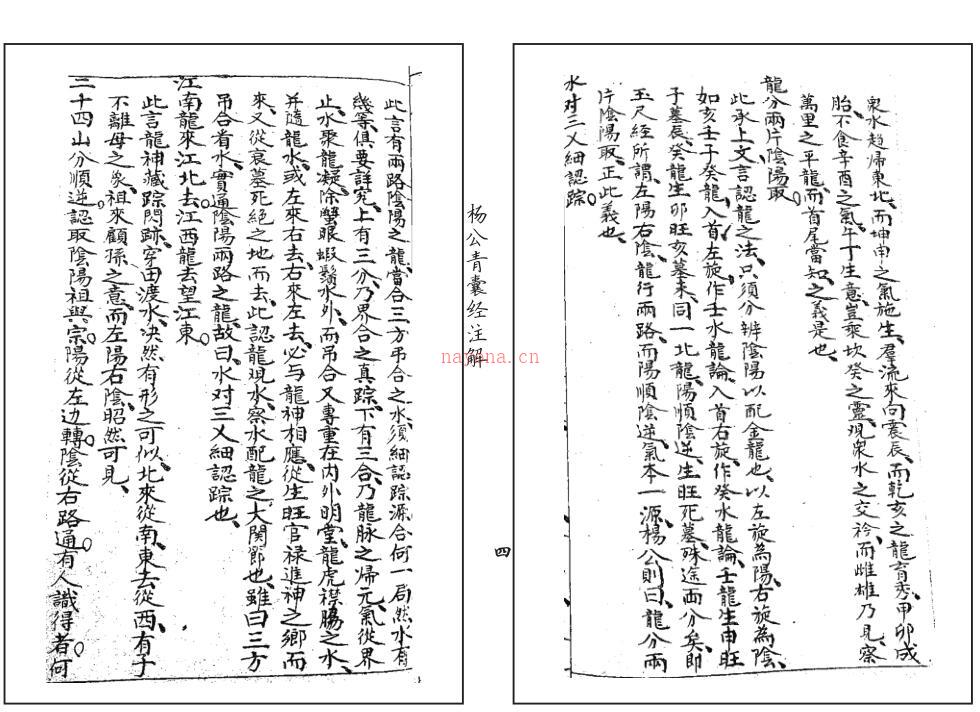 泉水趨帰東北、而坤申之氣施生、羣流來向震辰、而乾亥之龍育秀、甲卯成
胎、不食辛酉之氣、午丁生意、豈乘坎癸之靈、現衆水之交衿、而雌雄乃見、察
萬里之平龍、而首尾當知、之義是也、
龍分兩片陰陽取。
此承上文言認龍之法、只須分辨陰陽以配金龍也、以左旋為陽、右旋為陰、
如亥壬子癸龍、入首左旋、作壬水龍論、入首右旋、作癸水龍論、壬龍生申旺
子墓辰、癸龍生卯旺亥墓未、同一北龍、陽順陰逆、生旺死墓、殊途而分矣、即
玉尺經所謂、左陽右陰、龍行兩路、而陽順陰逆、氣本一源、楊公則曰、龍分兩
片陰陽取、正此義也、
水对三乂細認踪。
杨公青囊经注解
nayona.cn
四
此言有兩路陰陽之龍、當合三方吊合之水、須細認踪源合何一局、然水有
幾等、俱要詳究、上有三分、乃界合之真踪、下有三合、乃龍脉之帰元、氣從界
止、水聚龍凝、除蟹眼蝦鬚水外、而吊合又專重在内外明堂、龍虎襟腸之水、
并隨龍水、或左來右去、右來左去、必与龍神相應、從生旺官禄進神之鄉而
來、又從衰墓死絕之地而去、此認龍現水、察水配龍之大関節也、雖曰三方
吊合看水、實通陰陽兩路之龍、故曰、水对三乂細認踪也、
江南龍來江北去、江西龍去望江東。
此言龍神藏踪閃跡、穿田渡水、决然有形之可似、北來從南、東去從西、有子
不離母之象、祖來顧孫之意、而左陽右陰、昭然可見、
二十四山分順逆、認取陰陽祖與宗。陽從左边轉。陰從右路通。有人識得者。何